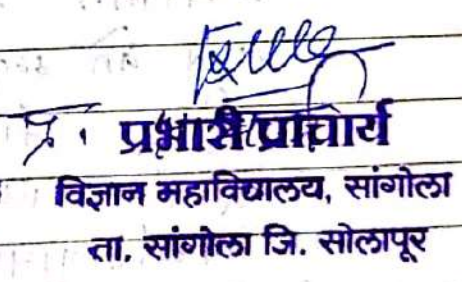 प्र. प्रभारी प्राचार्य
विज्ञान महाविद्यालय, सांगोला
ता. सांगोला जि. सोलापूर